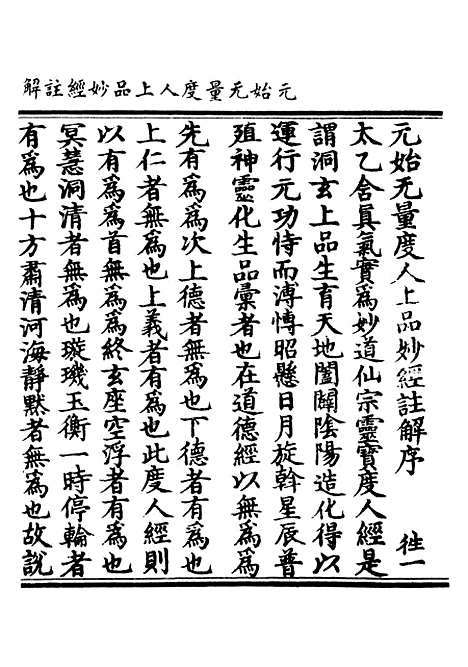 元始无量度人上品妙經註解
元始无量度人上品妙經註解序　徃一
太乙含真氣實爲妙道仙宗靈寶度人經是
謂洞玄上品生育天地闔闢陰陽造化得以
運行元功恃而溥博昭懸日月旋斡星辰普
殖神靈化生品彙者也在道德經以無爲爲
先有爲爲次上德者無爲也下德者有爲也
上仁者無爲也上義者有爲也此度人經則
以有爲爲首無爲爲終玄座空浮者有爲也
冥慧洞清者無爲也璇璣玉衡一時停輪者
有爲也十方肅清河海靜默者無爲也故說